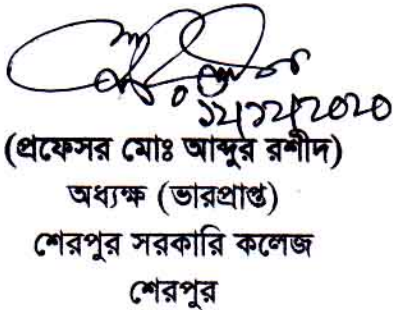 ১২/১২/২০২০
(প্রফেসর মোঃ আব্দুর রশীদ)
অধ্যক্ষ (ভারপ্রাপ্ত)
শেরপুর সরকারি কলেজ
শেরপুর